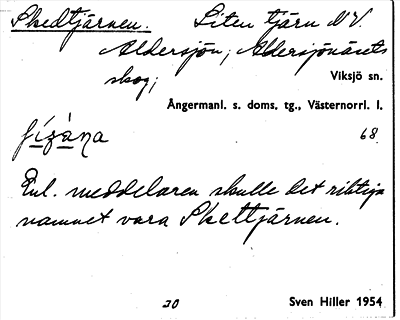 Skedtjärnen. Liten tjärn NV.
Aldersjön; Aldersjönäsets
skog; Viksjö sn.
Ångermanl. s. doms. tg., Västernorrl. l.
68
Enl. meddelaren skulle det riktiga
namnet vara Skettjärnen.
20 Sven Hiller 1954